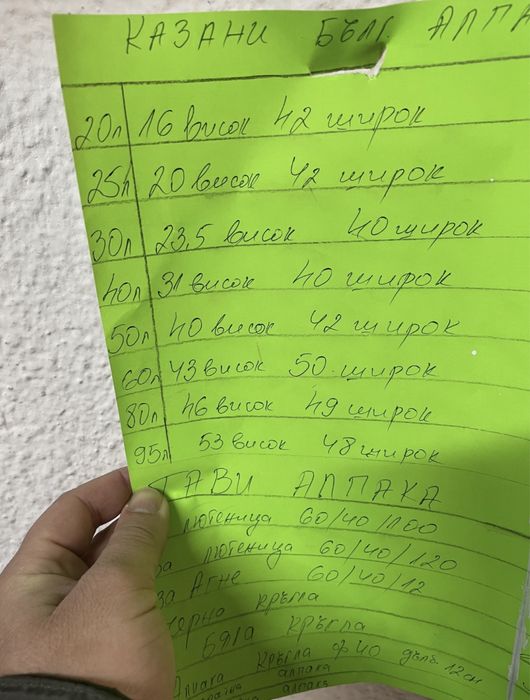 КАЗАНИ БЪЛГ. АЛПА
20л 16 висок 42 широк
25л 20 висок 42 широк
30л 23,5 висок 40 широк
40л 31 висок 40 широк
50л 40 висок 42 широк
60л 43 висок 50. широк
80л 46 висок 49 широк
95л 53 висок 48 широк
ТАВИ АЛПАКА
лютеница 60/40/100
за лютеница 60/40/120
за Агне 60/40/12
черна кръгла
бяла кръгла
Алпака кръгла ф40 дълб. 12см
алпака
алпака